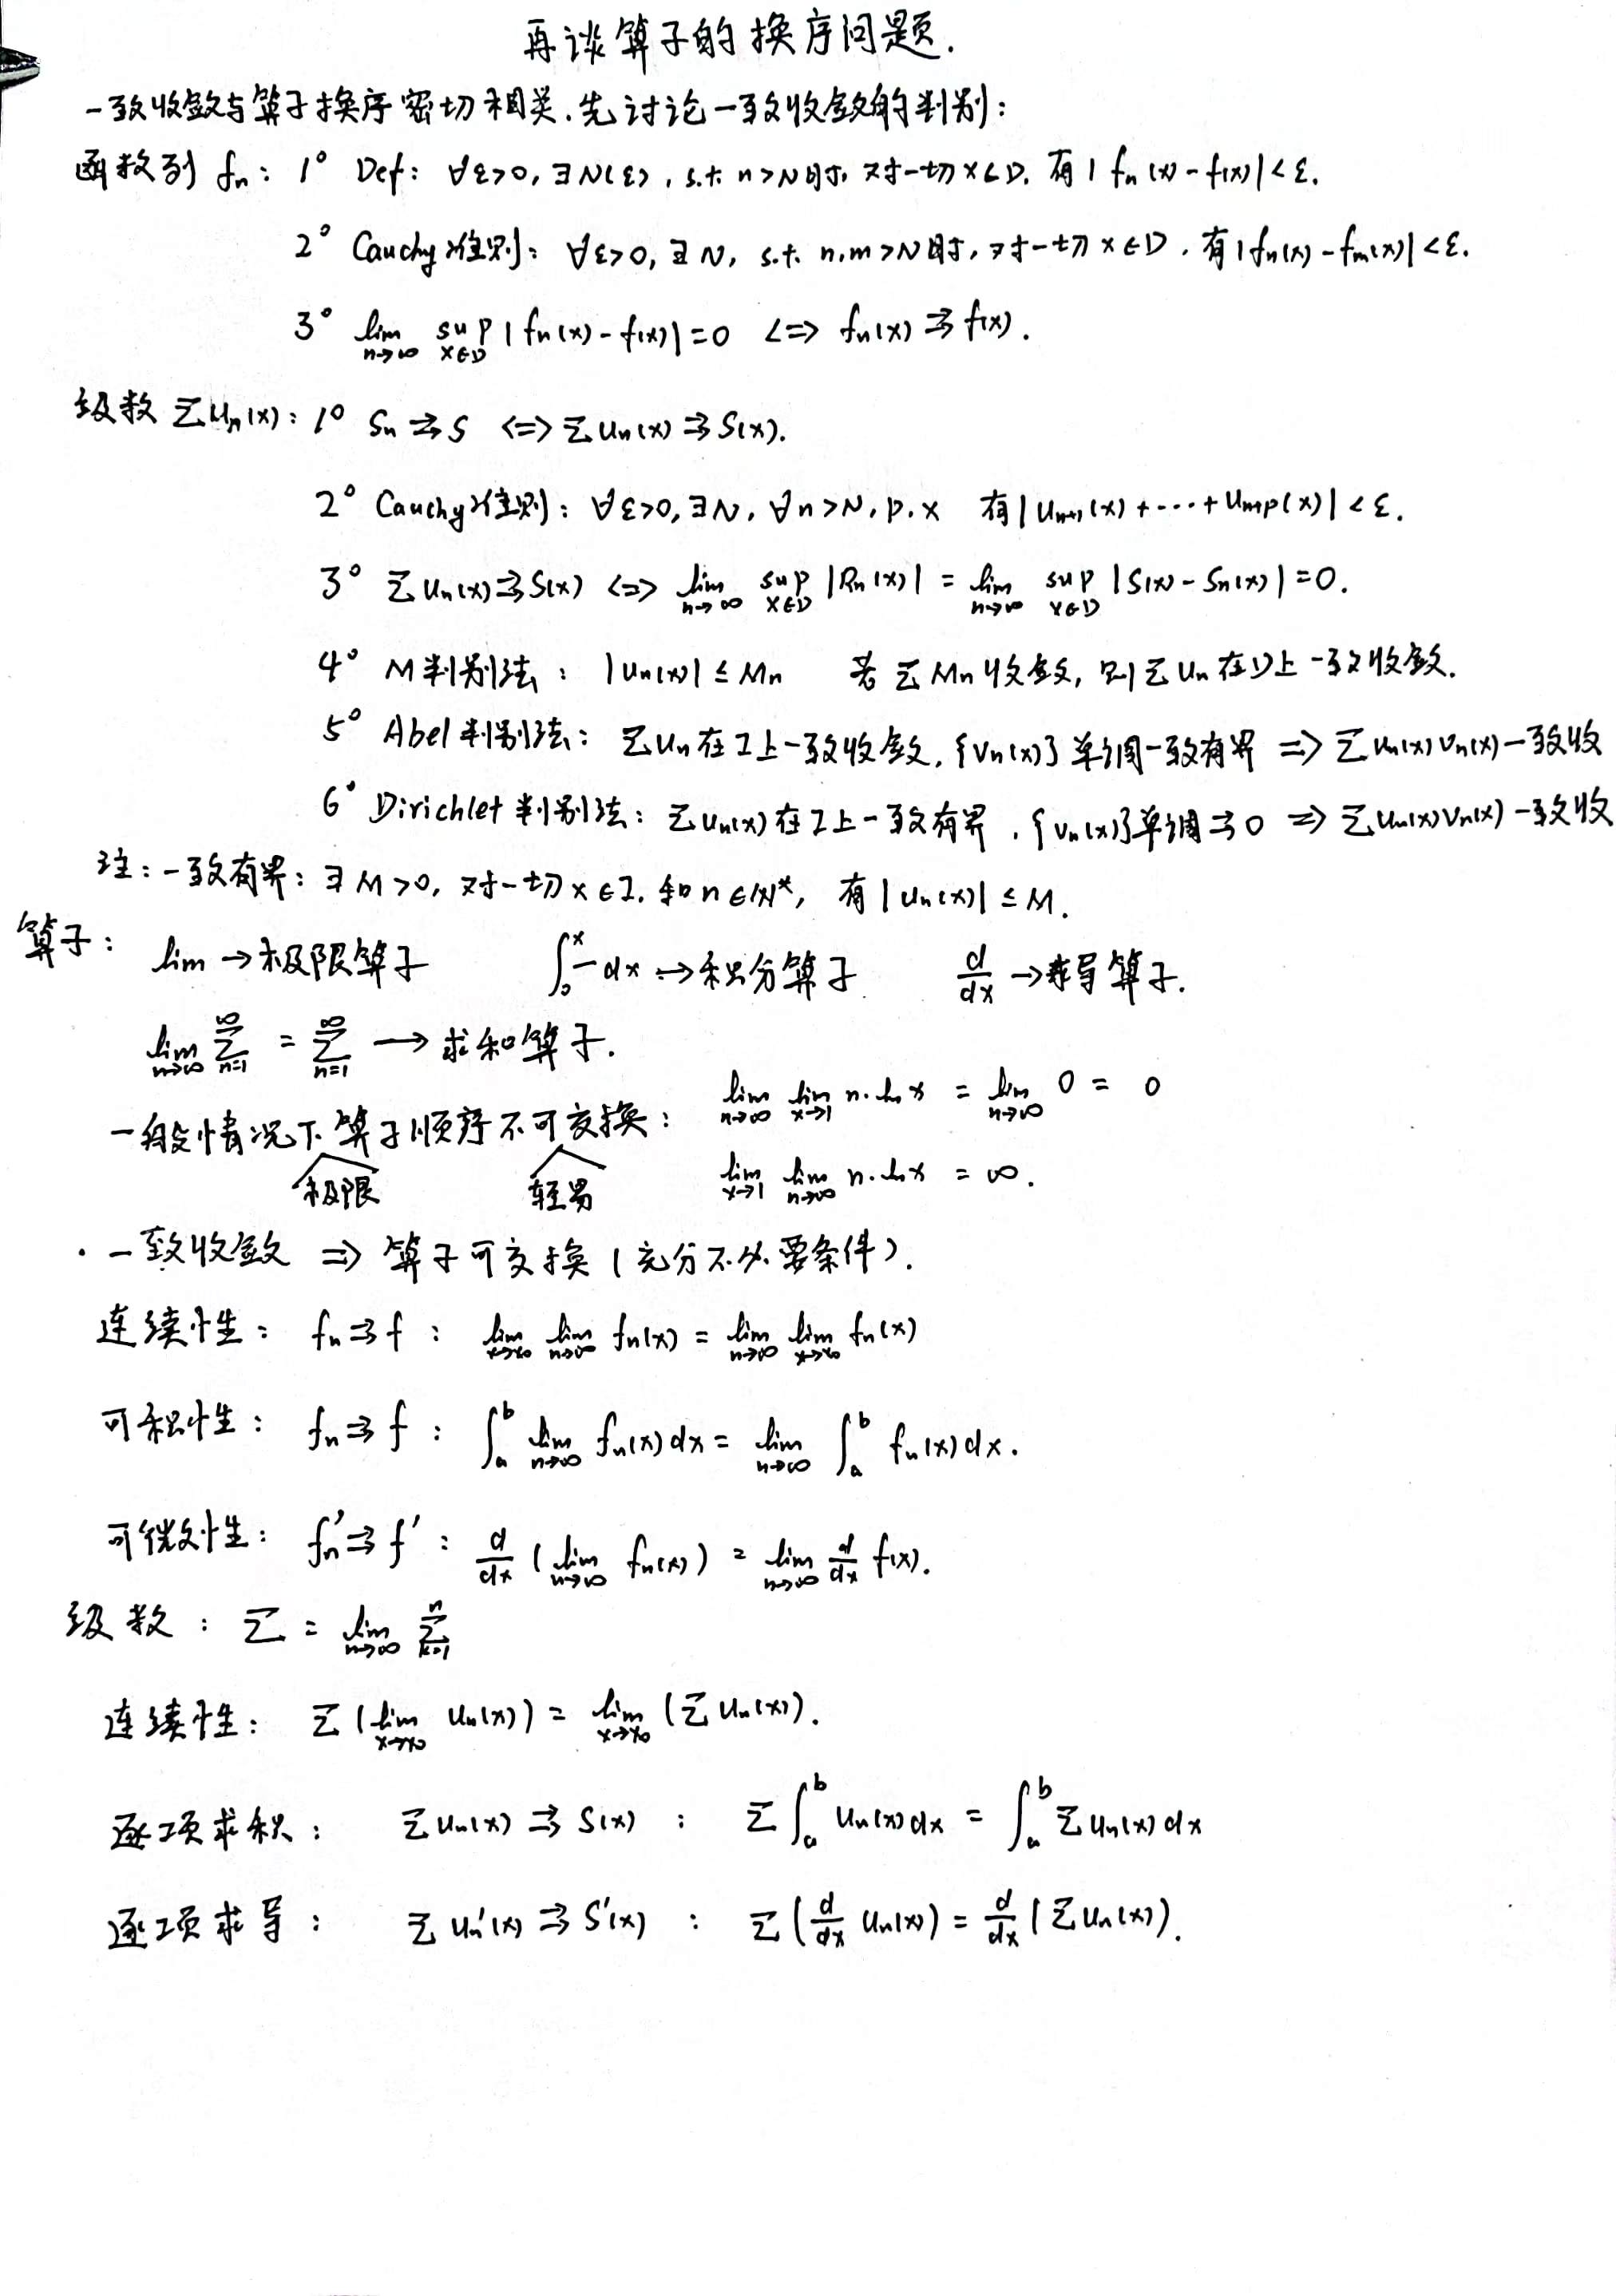 再谈算子的换序问题.
一致收敛与算子换序密切相关.先讨论一致收敛的判别:
函数列 fₙ: 1° Def: ∀ε>0, ∃N(ε), s.t. n>N时, 对一切x∈D, 有|fₙ(x)-f(x)|<ε.
2° Cauchy准则: ∀ε>0, ∃N, s.t. n,m>N时, 对一切x∈D, 有|fₙ(x)-fₘ(x)|<ε.
3° lim_{n→∞} sup_{x∈D} |fₙ(x)-f(x)|=0 <=> fₙ(x)⇉f(x).
级数 Σuₙ(x): 1° Sₙ⇉S <=> Σuₙ(x)⇉S(x).
2° Cauchy准则: ∀ε>0, ∃N, ∀n>N, p, x 有|uₙ₊₁(x)+····+uₙ₊ₚ(x)|<ε.
3° Σuₙ(x)⇉S(x) <=> lim_{n→∞} sup_{x∈D} |Rₙ(x)| = lim_{n→∞} sup_{x∈D} |S(x)-Sₙ(x)|=0.
4° M判别法: |uₙ(x)|≤Mₙ 若ΣMₙ收敛, 则Σuₙ在D上一致收敛.
5° Abel判别法: Σuₙ在I上一致收敛, {vₙ(x)}单调一致有界 => Σuₙ(x)vₙ(x)一致收
6° Dirichlet判别法: Σuₙ(x)在I上一致有界, {vₙ(x)}单调⇉0 => Σuₙ(x)vₙ(x)一致收
注: 一致有界: ∃M>0, 对一切x∈I, 和n∈ℕ*, 有|uₙ(x)|≤M.
算子: lim→极限算子 ∫₀ˣ—dx→积分算子 d/dx→求导算子.
lim_{n→∞} Σ_{n=1}^{∞} = Σ_{n=1}^{∞} → 求和算子.
一般情况下算子顺序不可交换: lim_{n→∞} lim_{x→1} n·ln x = lim_{n→∞} 0 = 0
极限 轻易 lim_{x→1} lim_{n→∞} n·ln x = ∞.
·一致收敛 => 算子可交换(充分不必要条件).
连续性: fₙ⇉f: lim_{x→x₀} lim_{n→∞} fₙ(x) = lim_{n→∞} lim_{x→x₀} fₙ(x)
可积性: fₙ⇉f: ∫ₐᵇ lim_{n→∞} fₙ(x)dx = lim_{n→∞} ∫ₐᵇ fₙ(x)dx.
可微性: fₙ'⇉f': d/dx (lim_{n→∞} fₙ(x)) = lim_{n→∞} d/dx f(x).
级数: Σ = lim_{n→∞} Σ_{k=1}^{n}
连续性: Σ(lim_{x→x₀} uₙ(x)) = lim_{x→x₀} (Σuₙ(x)).
逐项求积: Σuₙ(x)⇉S(x): Σ∫ₐᵇ uₙ(x)dx = ∫ₐᵇ Σuₙ(x)dx
逐项求导: Σuₙ'(x)⇉S'(x): Σ(d/dx uₙ(x)) = d/dx (Σuₙ(x)).